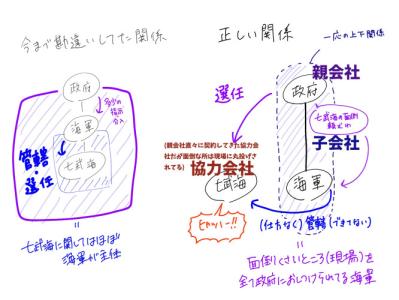 今まで勘違いしてた関係
政府
多少の指示
介入
海軍
七武海
管轄・選任
=
七武海に関してはほぼ
海軍が主任
正しい関係
一応の上下関係
親会社
政府
選任
七武海の面倒
頼むわ
子会社
(親会社直々に契約してきた協力会
社だが面倒な所は現場に丸投げさ
れてる)
協力会社
七武海
海軍
ヒャッハー!!
(仕方なく)管轄(できてない)
=
面倒くさいところ(現場)を
全て政府におしつけられてる海軍